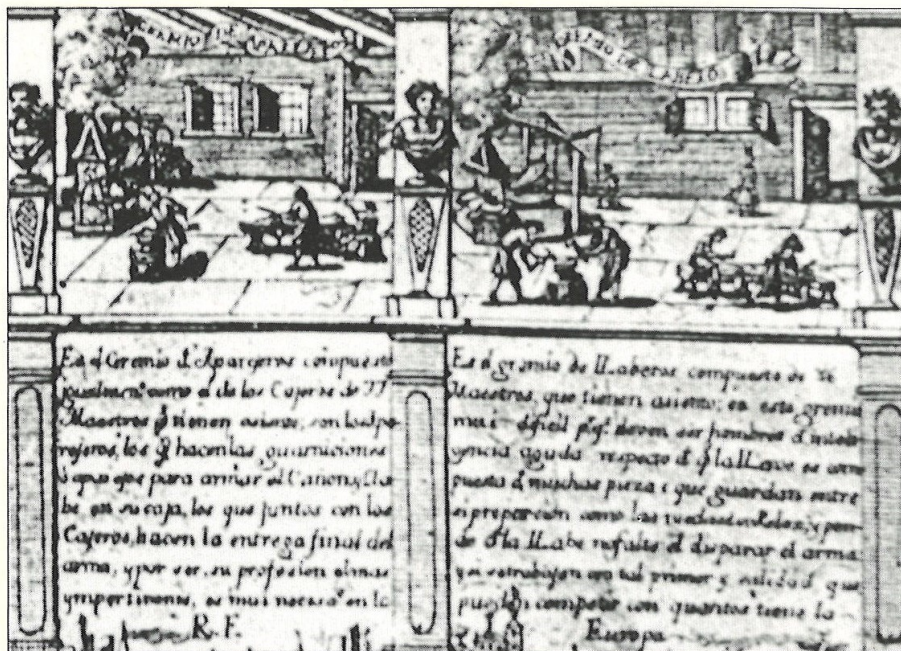 GREMIO DE
GREMIO DE
Es el Gremio d' Aparejeros compuesto
igualmte como el de los Cajeros de 77
Maestros q tienen asiento, son los Apa
rejeros, los q hacen las guarniciones
para armar el Cañon y lla
be en su caja, los que juntos con los
Cajeros, hacen la entrega final del
arma, y por ser su profesion el mas
ympertinente, es mui necesa en la
R. F.
Es el gremio de llaberos compuesto de
Maestros, que tienen asiento; es este gremio
mui dificil pq deven ser hombres d inteli
gencia aguda respecto d q la llave es com
puesta d muchas piezas que guardan entre
si preparcion como las ruedas un Relox, y pen
de d la llabe nofalte el disparar el arma
y si trabajan con tal primor y calidad que
pueden competir con quantos tiene la
Europa